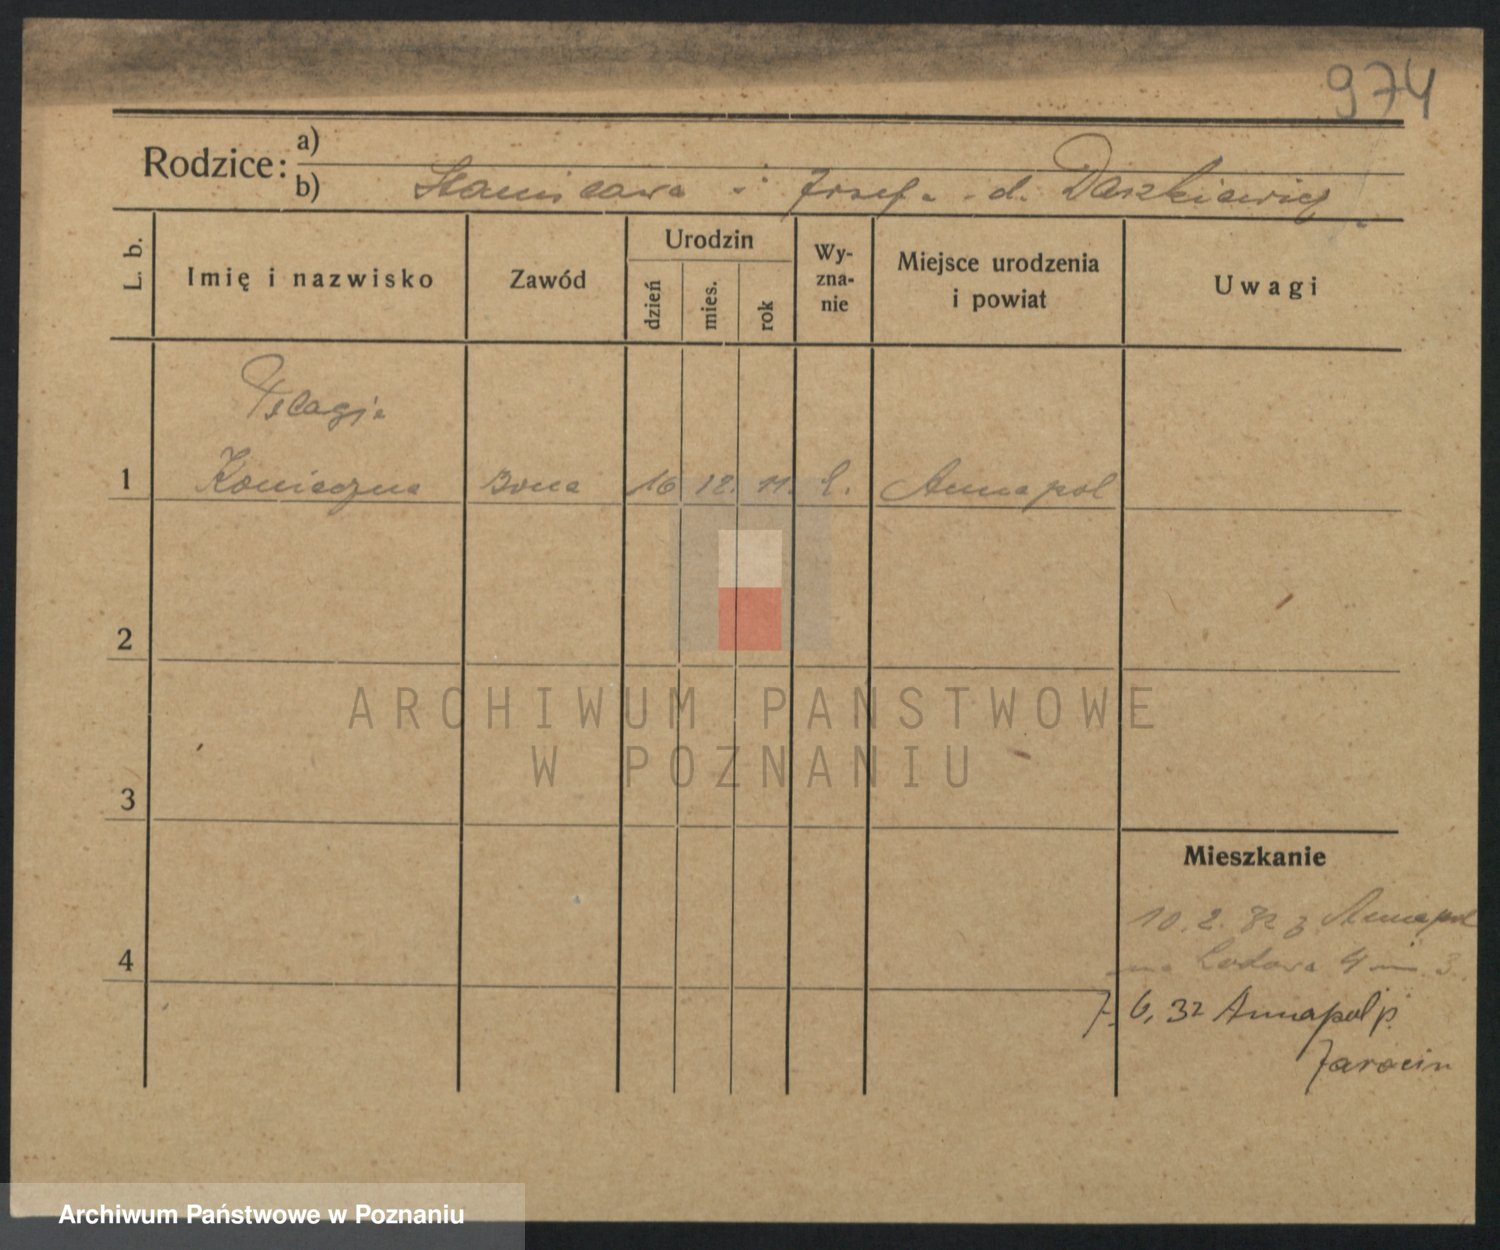 974
Rodzice: a)
b) Stanisława i Józef. d. Daszkiewicz.
L. b.
Imię i nazwisko
Zawód
Urodzin
dzień
mies.
rok
Wy-
zna-
nie
Miejsce urodzenia
i powiat
Uwagi
Pelagja
1 Konieczna Bona 16 12. 11. k. Annapol
2
3
4
Mieszkanie
10. 2. 32 z Annapol
na Lodowa 4 m. 3.
7. 6. 32 Annapol p.
Jarocin
ARCHIWUM PAŃSTWOWE
W POZNANIU
Archiwum Państwowe w Poznaniu